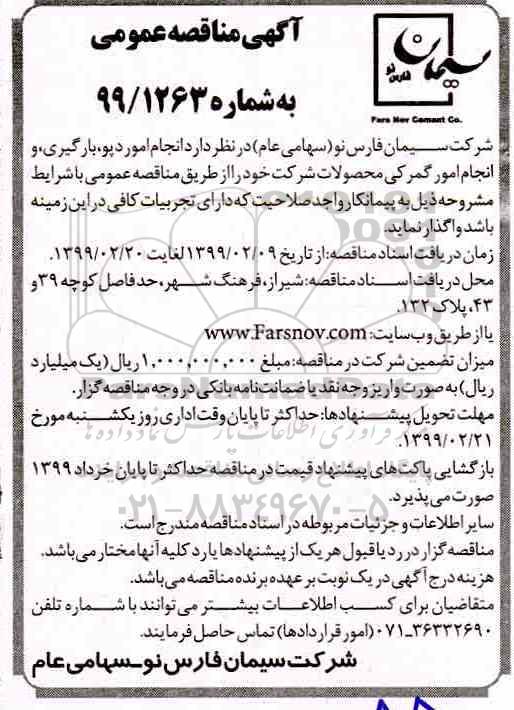 آگهی مناقصه عمومی
به شماره ۹۹/۱۲۶۳
سیمان
فارس نو
Fars Nov Cement Co.
شرکت سیمان فارس نو (سهامی عام) در نظر دارد انجام امور دپو، بارگیری، و
انجام امور گمرکی محصولات شرکت خود را از طریق مناقصه عمومی با شرایط
مشروحه ذیل به پیمانکار واجد صلاحیت که دارای تجربیات کافی در این زمینه
باشد واگذار نماید.
زمان دریافت اسناد مناقصه: از تاریخ ۱۳۹۹/۰۲/۰۹ لغایت ۱۳۹۹/۰۲/۲۰.
محل دریافت اسناد مناقصه: شیراز، فرهنگ شهر، حد فاصل کوچه ۳۹ و
۴۳، پلاک ۱۳۲.
یا از طریق وب سایت: www.Farsnov.com
میزان تضمین شرکت در مناقصه: مبلغ ۱,۰۰۰,۰۰۰,۰۰۰ ریال (یک میلیارد
ریال) به صورت واریز وجه نقد یا ضمانت نامه بانکی در وجه مناقصه گزار.
مهلت تحویل پیشنهادها: حداکثر تا پایان وقت اداری روز یکشنبه مورخ
۱۳۹۹/۰۲/۲۱.
بازگشایی پاکت های پیشنهاد قیمت در مناقصه حداکثر تا پایان خرداد ۱۳۹۹
صورت می پذیرد.
۰۲۱-۸۸۳۴۹۶۷۰-۵
سایر اطلاعات و جزئیات مربوطه در اسناد مناقصه مندرج است.
مناقصه گزار در رد یا قبول هر یک از پیشنهادها یا رد کلیه آنها مختار می باشد.
هزینه درج آگهی در یک نوبت بر عهده برنده مناقصه می باشد.
متقاضیان برای کسب اطلاعات بیشتر می توانند با شماره تلفن
۰۷۱-۳۶۳۳۲۶۹۰ (امور قراردادها) تماس حاصل فرمایند.
شرکت سیمان فارس نو-سهامی عام